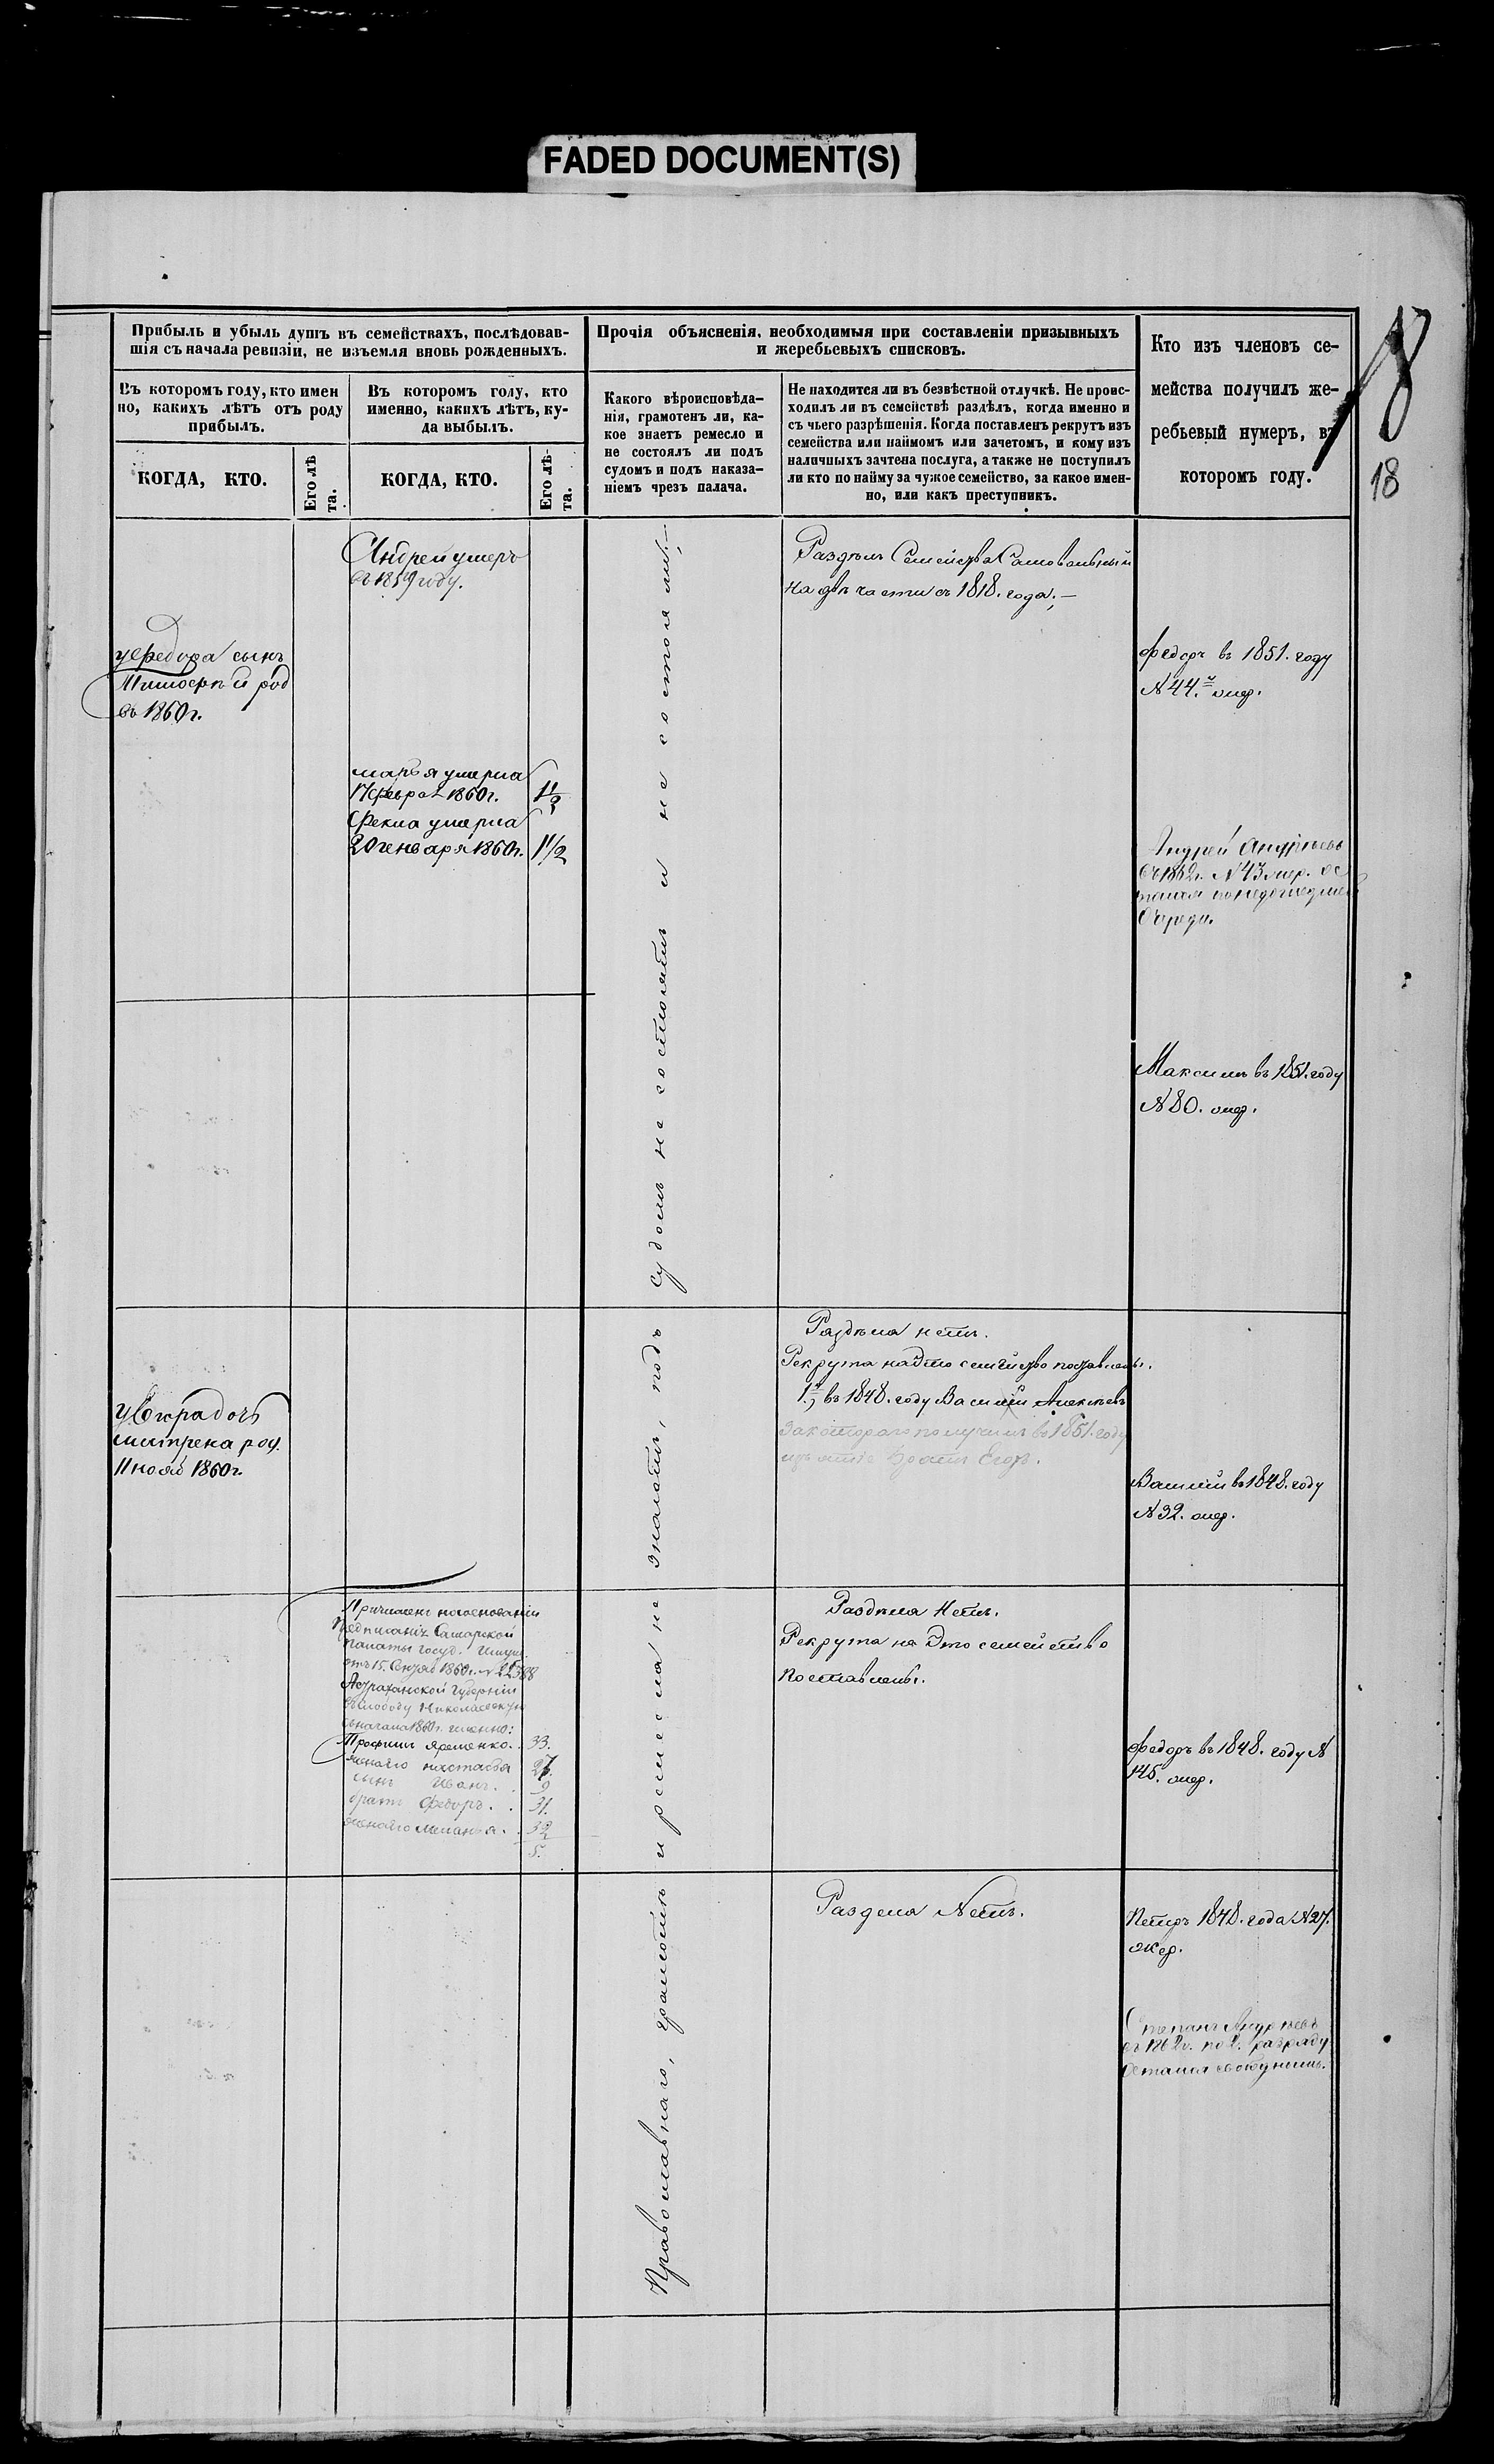 FADED DOCUMENT(S)
18
Прибыль и убыль душъ въ семействахъ, послѣдовав-
шія съ начала ревизіи, не изъемля вновь рожденныхъ.
Въ которомъ году, кто имен
но, какихъ лѣтъ отъ роду
прибылъ.
КОГДА, КТО.
Его лѣ
та.
Въ которомъ году, кто
именно, какихъ лѣтъ, ку-
да выбылъ.
КОГДА, КТО.
Его лѣ-
та.
Прочія объясненія, необходимыя при составленіи призывныхъ
и жеребьевыхъ списковъ.
Какого вѣроисповѣда-
нія, грамотенъ ли, ка-
кое знаетъ ремесло и
не состоялъ ли подъ
судомъ и подъ наказа-
ніемъ чрезъ палача.
Не находится ли въ безвѣстной отлучкѣ. Не проис-
ходилъ ли въ семействѣ раздѣлъ, когда именно и
съ чьего разрѣшенія. Когда поставленъ рекрутъ изъ
семейства или наймомъ или зачетомъ, и кому изъ
наличныхъ зачтена послуга, а также не поступилъ
ли кто по найму за чужое семейство, за какое имен-
но, или какъ преступникъ.
Кто изъ членовъ се-
мейства получилъ же-
ребьевый нумеръ, въ
которомъ году.
Андрей умеръ
въ 1859 году.
Раздѣлъ Семейства Самовольный
на двѣ части съ 1818. года;—
у Федора сынъ
род
въ 1860 г.
Федоръ въ 1851. году
№ 44.
марья умерла
17 февра 1860 г. 1 1/2
Фекла умерла
20 генваря 1860 г. 1 1/2
Андрей Андреевъ
въ 1862 г. № 43 жер. ос
тался
Очереди.
Максимъ въ 1851. году
№ 80.
Раздѣла нетъ.
Рекрута на Это семейство поставлены.
1.й, въ 1848. году Василій Алексѣевъ
за котораго получилъ въ 1851. году
братъ Егоръ.
дочь
род.
11 нояб 1860 г.
Василій въ 1848. году
№ 32.
Причислены на основаніи
Предписанія Самарской
Палаты Госуд. Имущ.
отъ 15. Октяб 1860 г. № 22388
Астраханской Губерніи
въ слободу Николаевскую
съ начала 1860 г. именно:
Трофимъ Яременко. 33.
жена его настасья 27.
сынъ Иванъ. 9
братъ Федоръ. 31.
жена его Меланья. 32
5.
Раздѣла Нетъ.
Рекрута на Это семейство
Поставлены.
Федоръ въ 1848. году №
145.
Раздела Нетъ.
Петръ 1848. года № 27.
Степанъ Андреевъ
въ 1862 г. по 2. разряду
Остался свободнымъ.
Православнаго, грамотѣ и ремесла не знаютъ, подъ судомъ не состоятъ и не состояли;—